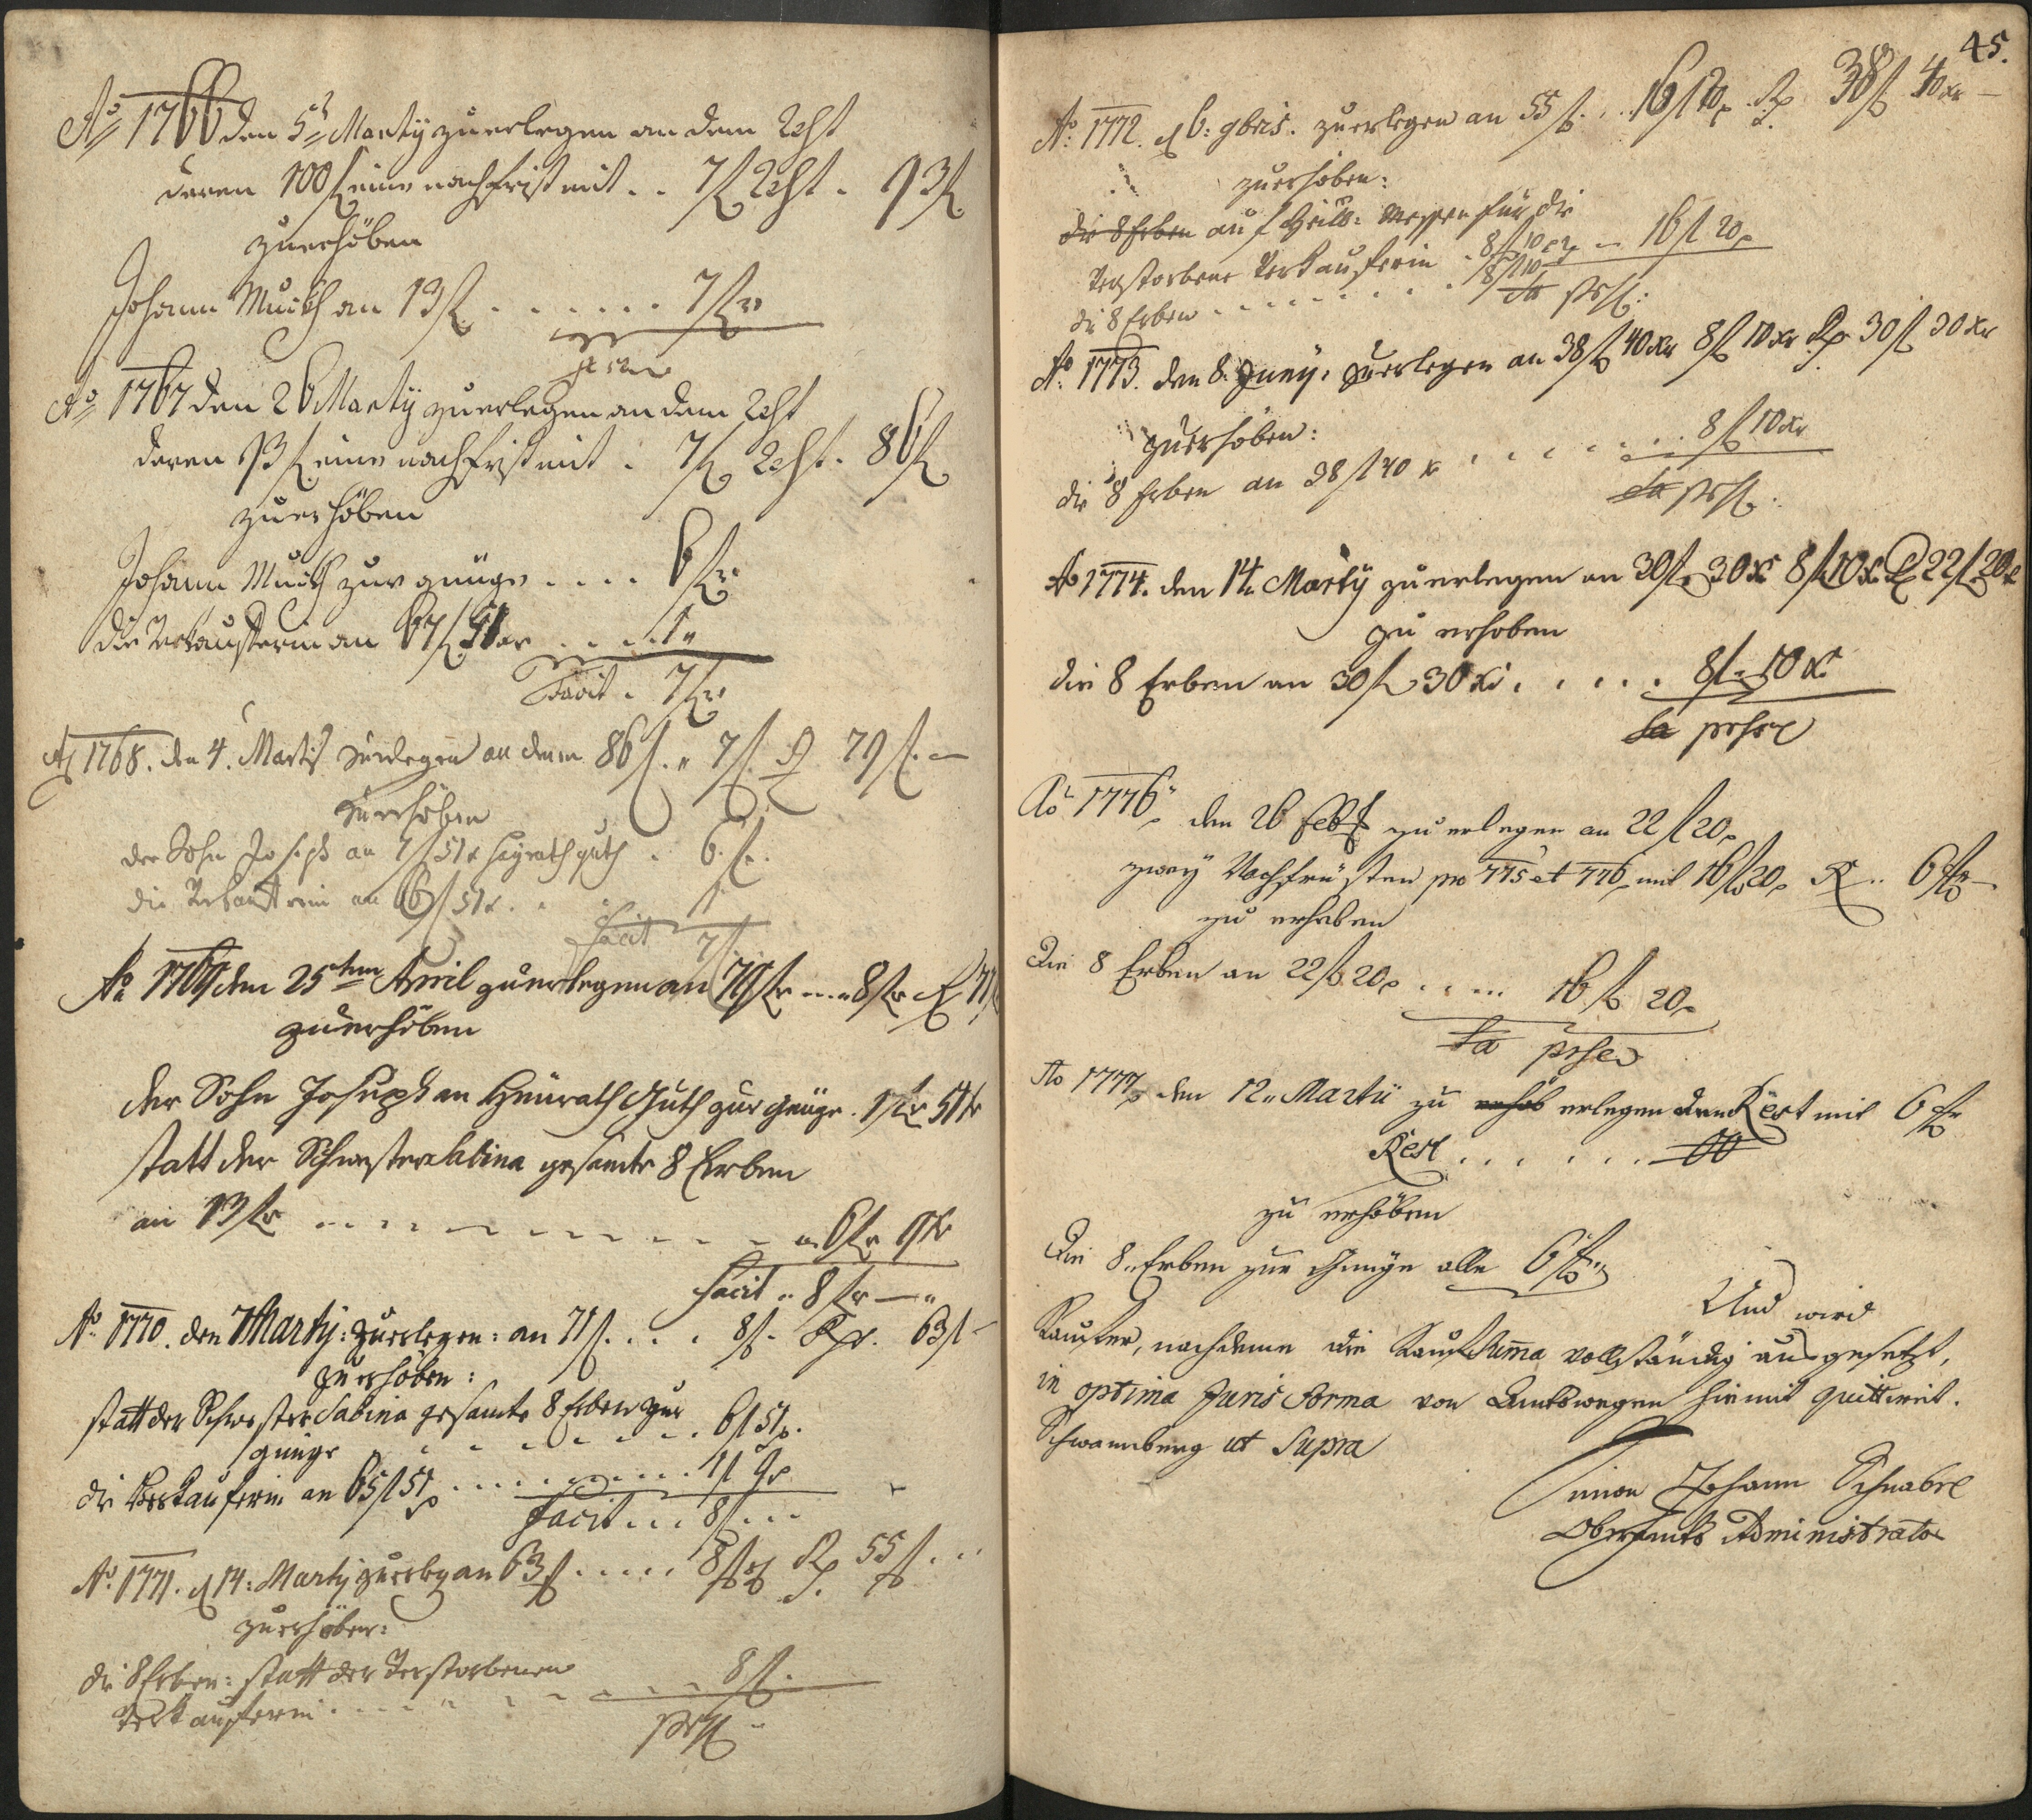 Ao 1766 den 5t Marty zu erlegen an dem Rest
deren 100 f eine nachfrist mit . . 7 f Rest . 93 f
zu erhöben
Johann Musch an 13 f . . . . . . . 7 f
Ao 1767 den 26 Marty zu erlegen an dem Rest
deren 93 f eine nachfrist mit . 7 f Rest . 86 f
zu erhöben
Johann Musch zur gnüge . . . . 6 f
die Verkaufferin an 67 f 51 xr . . . . 1 "
Facit . 7 f
Ao 1768. den 4. Martii zu erlegen an denen 86 f. " 7 f. R 79 f. —
zu erhöben
der Sohn Joseph an 7 f 51 x Heyrathguth . 6 f.
die Verkaufferin an 66 f 51 x . . 1
Facit 7 f
Ao 1769 den 25ten April zu erlegen an 79 f . . . 8 f R 71 f
zu erhöben
der Sohn Joseph an Heurath Guth zur Gnüge . 1 f 51 x
statt der Schwester Sabina gesamte 8 Erben
an 13 f . . . . . . . . . 6 f 9 x
Facit . 8 f — "
Ao 1770. den 7 Marty: zu erlegen: an 71 f. . . . 8 f. R. 63 f —
zu erhöben:
statt der Schwester Sabina gesamte 8 Erben zur
gnüge . . . . . . . . 6 f 51 x.
die Verkauferin an 65 f 51 x . . . . . . . . . 1 f 9 x
Facit . . . 8 f . . .
Ao 1771. d 14: Marty zu erleg an 63 f . . . . . 8 f R. 55 f . . .
zu erhöben:
die 8 Erben: statt der Verstorbenen
Verkaufferin . . . . . . . . . . 8 f.
45.
Ao 1772. d 6: 9bris. zu erlegen an 55 f. . . 16 f 20 x R. 38 f 40 xr —
zu erhöben:
die 8 Erben auf Heil: Messen für die
Verstorbene Verkaufferin . 8 f 10 xr — 16 f 20 x
die 8 Erben . . . . . . . . . 8 f 10
Ao 1773. den 8. Juny. zu erlegen an 38 f 40 xr 8 f 10 xr R 30 f 30 xr
zu erhöben:
die 8 Erben an 38 f 40 x . . . . . . . . . 8 f 10 xr
Ao 1774. den 14. Marty zu erlegen an 30 f 30 x 8 f 10 x R 22 f 20 x
zu erhoben
die 8 Erben an 30 f 30 x . . . . . 8 f 10 x
Ao 1776 den 26 Feb zu erlegen an 22 f 20 x
zwey Nachfrüsten pro 775 et 776 mit 16 f 20 x R . . 6 f —
zu erheben
Die 8 Erben an 22 f 20 x . . . . . 16 f 20 x
Ao 1777 den 12. Martii zu erhöb erlegen den Rest mit 6 f
Rest . . . . . . 00
zu erhöben
Die 8. Erben zur Gnüge alle 6 f
Und wird
Kaufer, nachdeme die Kauf Summa vollständig ausgesetzt,
in optima Juris Forma von Amtswegen hiemit quittirt.
Schwannberg ut Supra
Simon Johann Schnabel
Oberamts Administrator